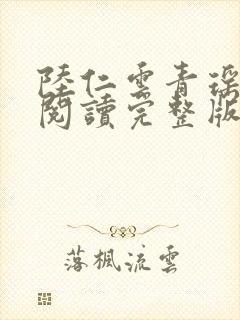 陸仁雲青瑶
閱讀完整版
落楓流雲